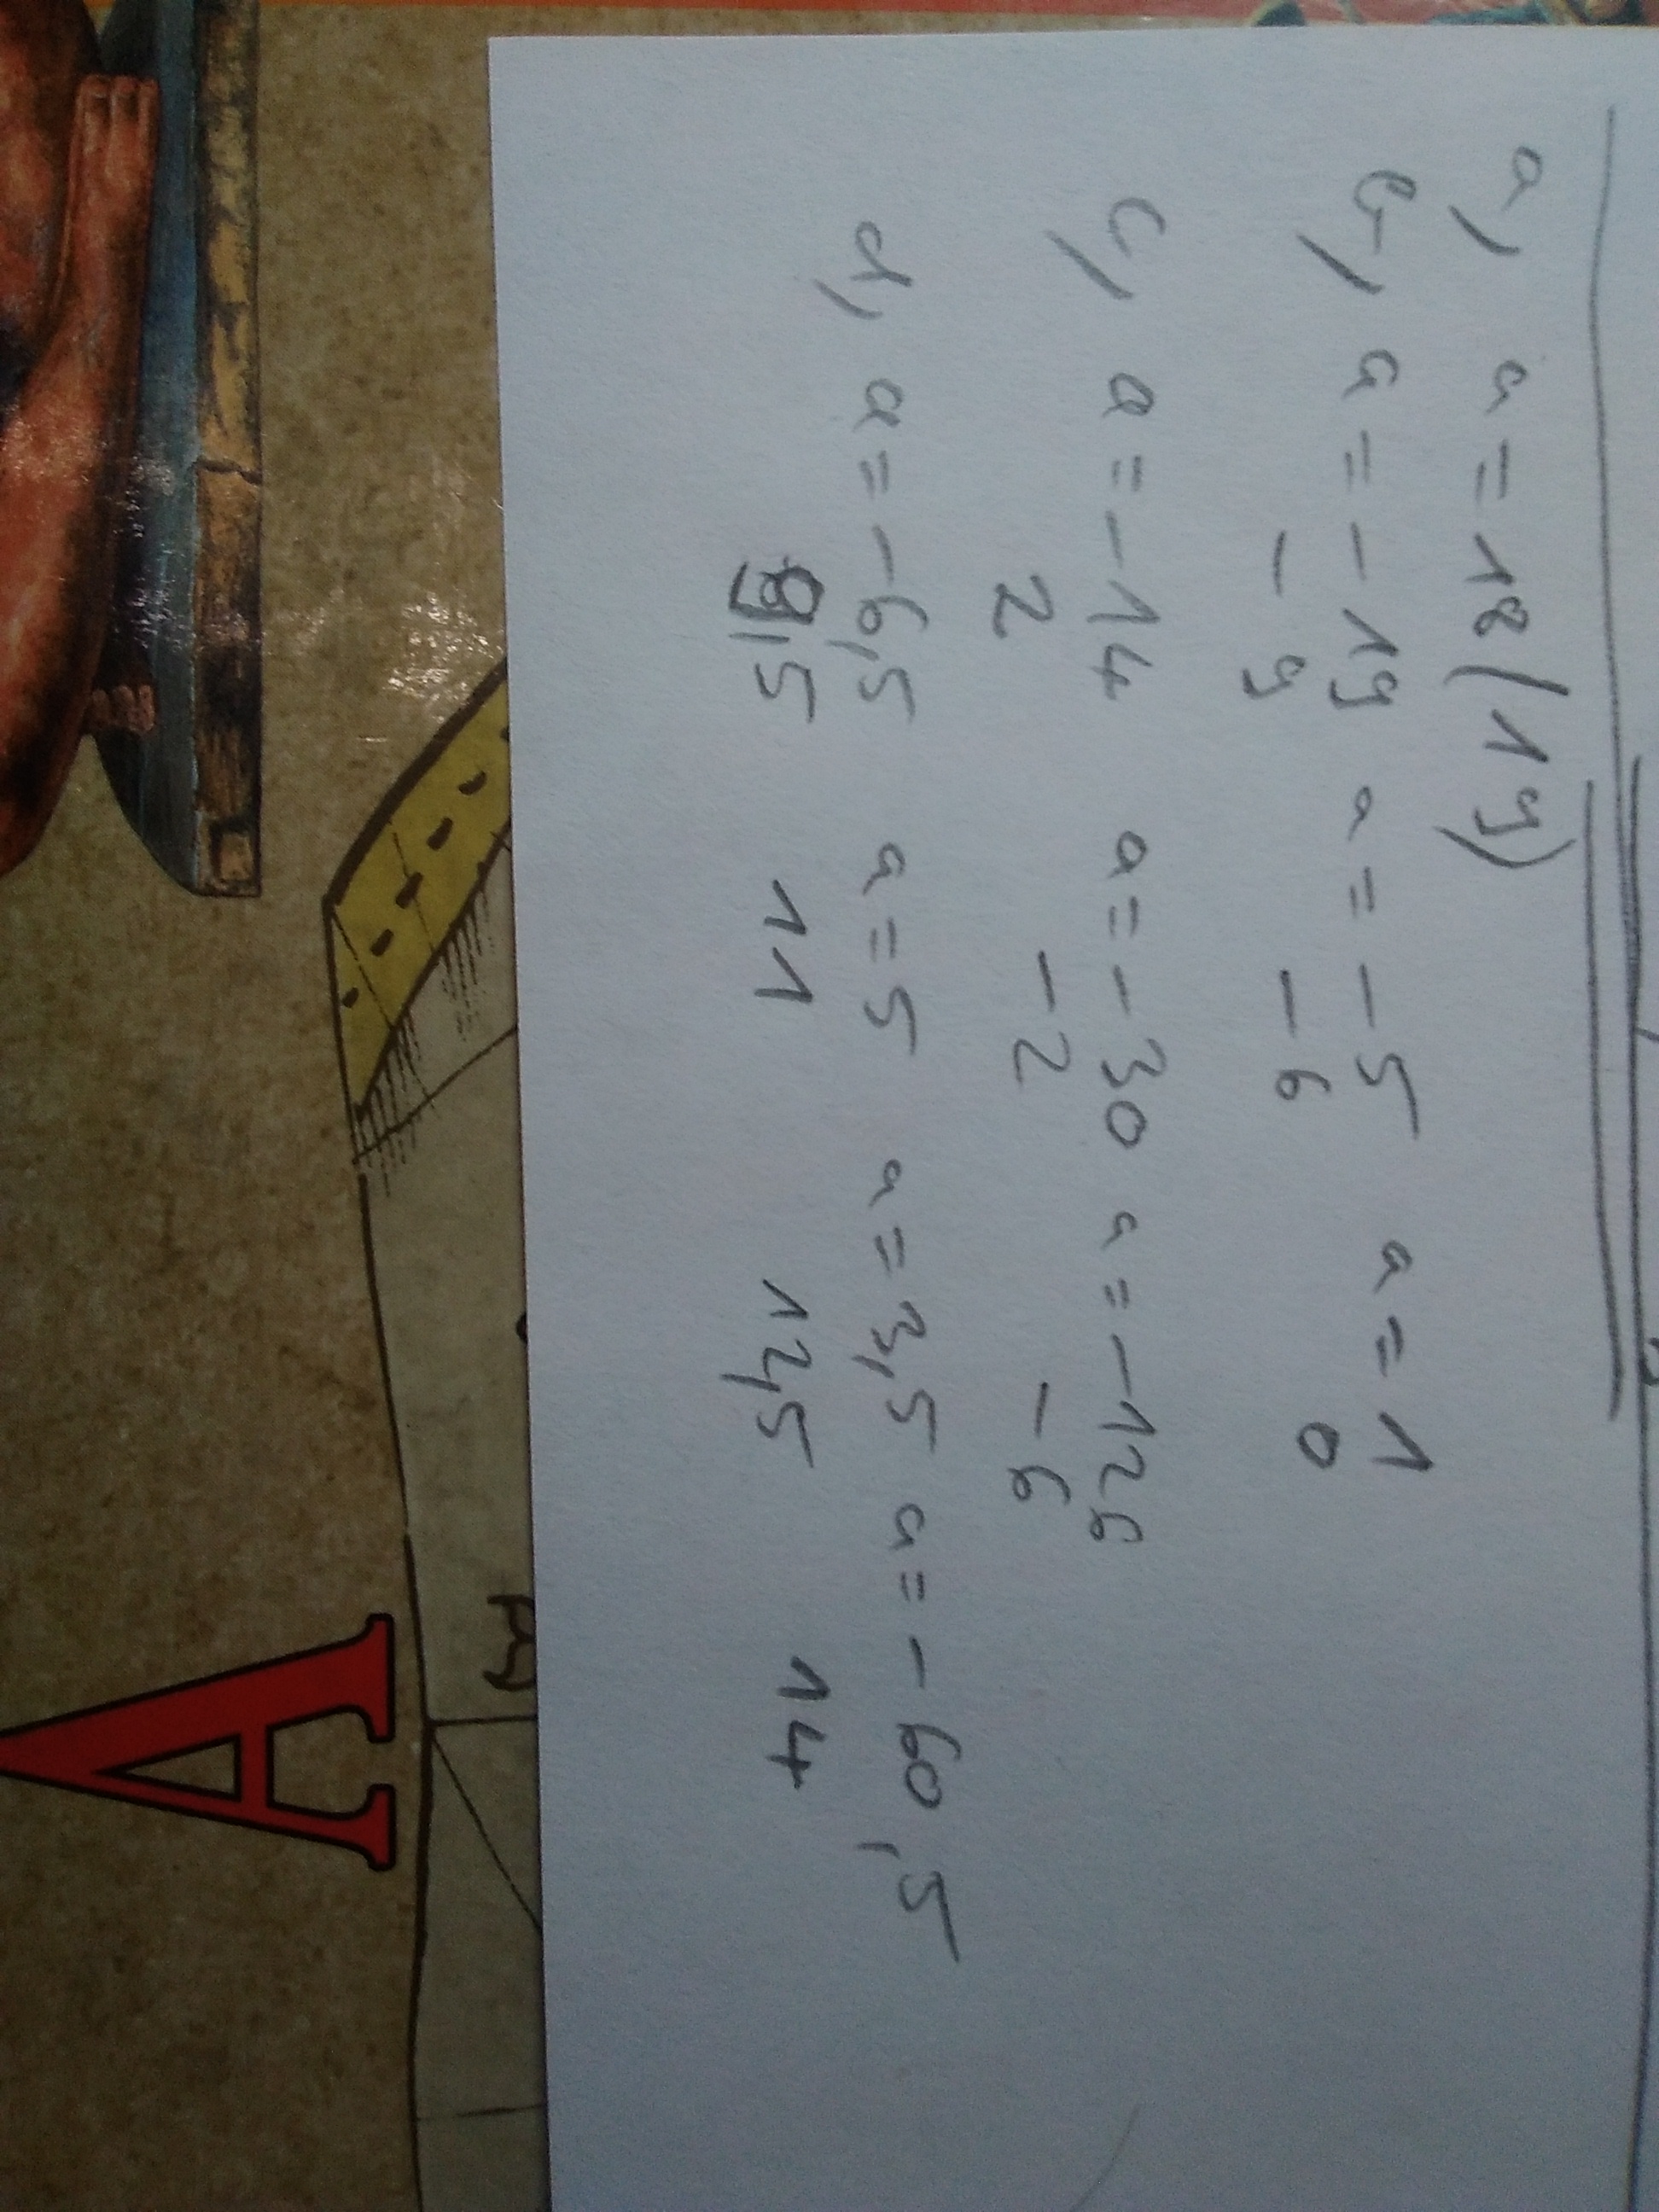 a, a = 18 (19)
b, a = - 19 a = - 5 a = 1
- 9 - 6 0
c, a = - 14 a = - 30 a = - 126
2 - 2 - 6
d, a = - 6,5 a = 5 a = 3,5 a = - 60,5
9,5 11 12,5 14
A